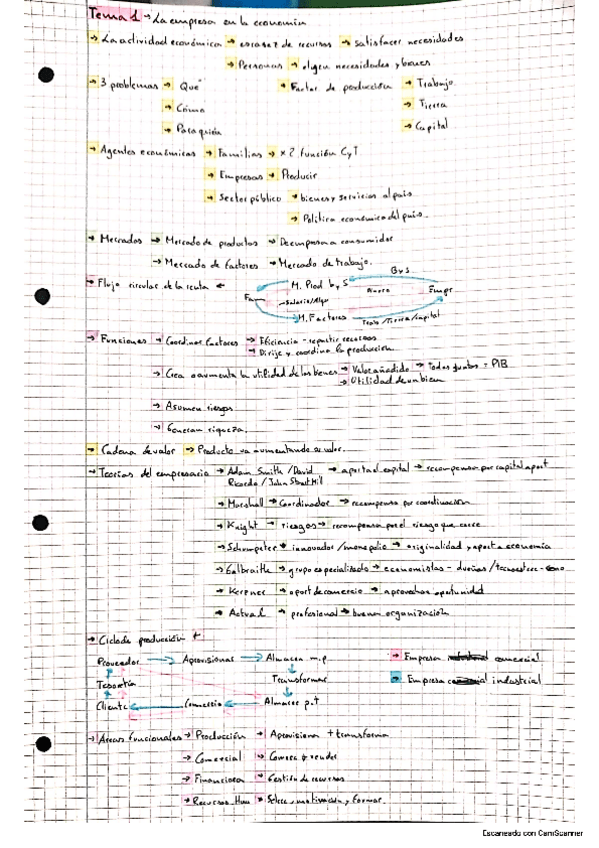 Tema 1 → La empresa en la economía
→ La actividad económica → escasez de recursos → satisfacer necesidades
→ Personas → eligen necesidades y bienes
→ 3 problemas → Qué → Factor de producción → Trabajo
→ Cómo → Tierra
→ Para quién → Capital
→ Agentes económicos → Familias → x 2 función C y T
→ Empresas → Producir
→ Sector público → bienes y servicios al país
→ Política económica del país.
→ Mercados → Mercado de productos → De empresa a consumidor
→ Mercado de factores → Mercado de trabajo.
→ Flujo circular de la renta ← M. Prod b y S ByS
Fam Dinero Empr
→ Salario/Alqu
M. Factores Trab/Tierra/capital
→ Funciones → Coordinar factores → Eficiencia - repartir recursos
→ Dirije y coordina la producción
→ Crea o aumenta la utilidad de los bienes → Valor añadido → Todos juntos = PIB
→ Utilidad de un bien
→ Asumen riesgos
→ Generan riqueza.
→ Cadena de valor → Producto va aumentando su valor.
→ Teorías del empresario → Adam Smith / David → aporta el capital → recompensa por capital aport
Ricardo / John Stuart Mill
→ Marshall → Coordinador → recompensa por coordinación
→ Knight → riesgos → recompensa por el riesgo que corre
→ Schumpeter → innovador / monopolio → originalidad y aport a economía
→ Galbraith → grupo especializado → economistas - dueños /
→ → aprovechan oportunidad
→ Actual → profesional → buena organización
→ Ciclo de producción
Proveedor → Aprovisionar → Almacen m.p → Empresa comercial
Tesorería Transformar → Empresa industrial
Cliente ← Comercio ← Almacen p.t
→ Areas funcionales → Producción → Aprovisiona + transforma
→ Comercial → vender
→ Financiera → Gestión de recursos
→ Recursos Hum → Selec, motivación y formar.
Escaneado con CamScanner